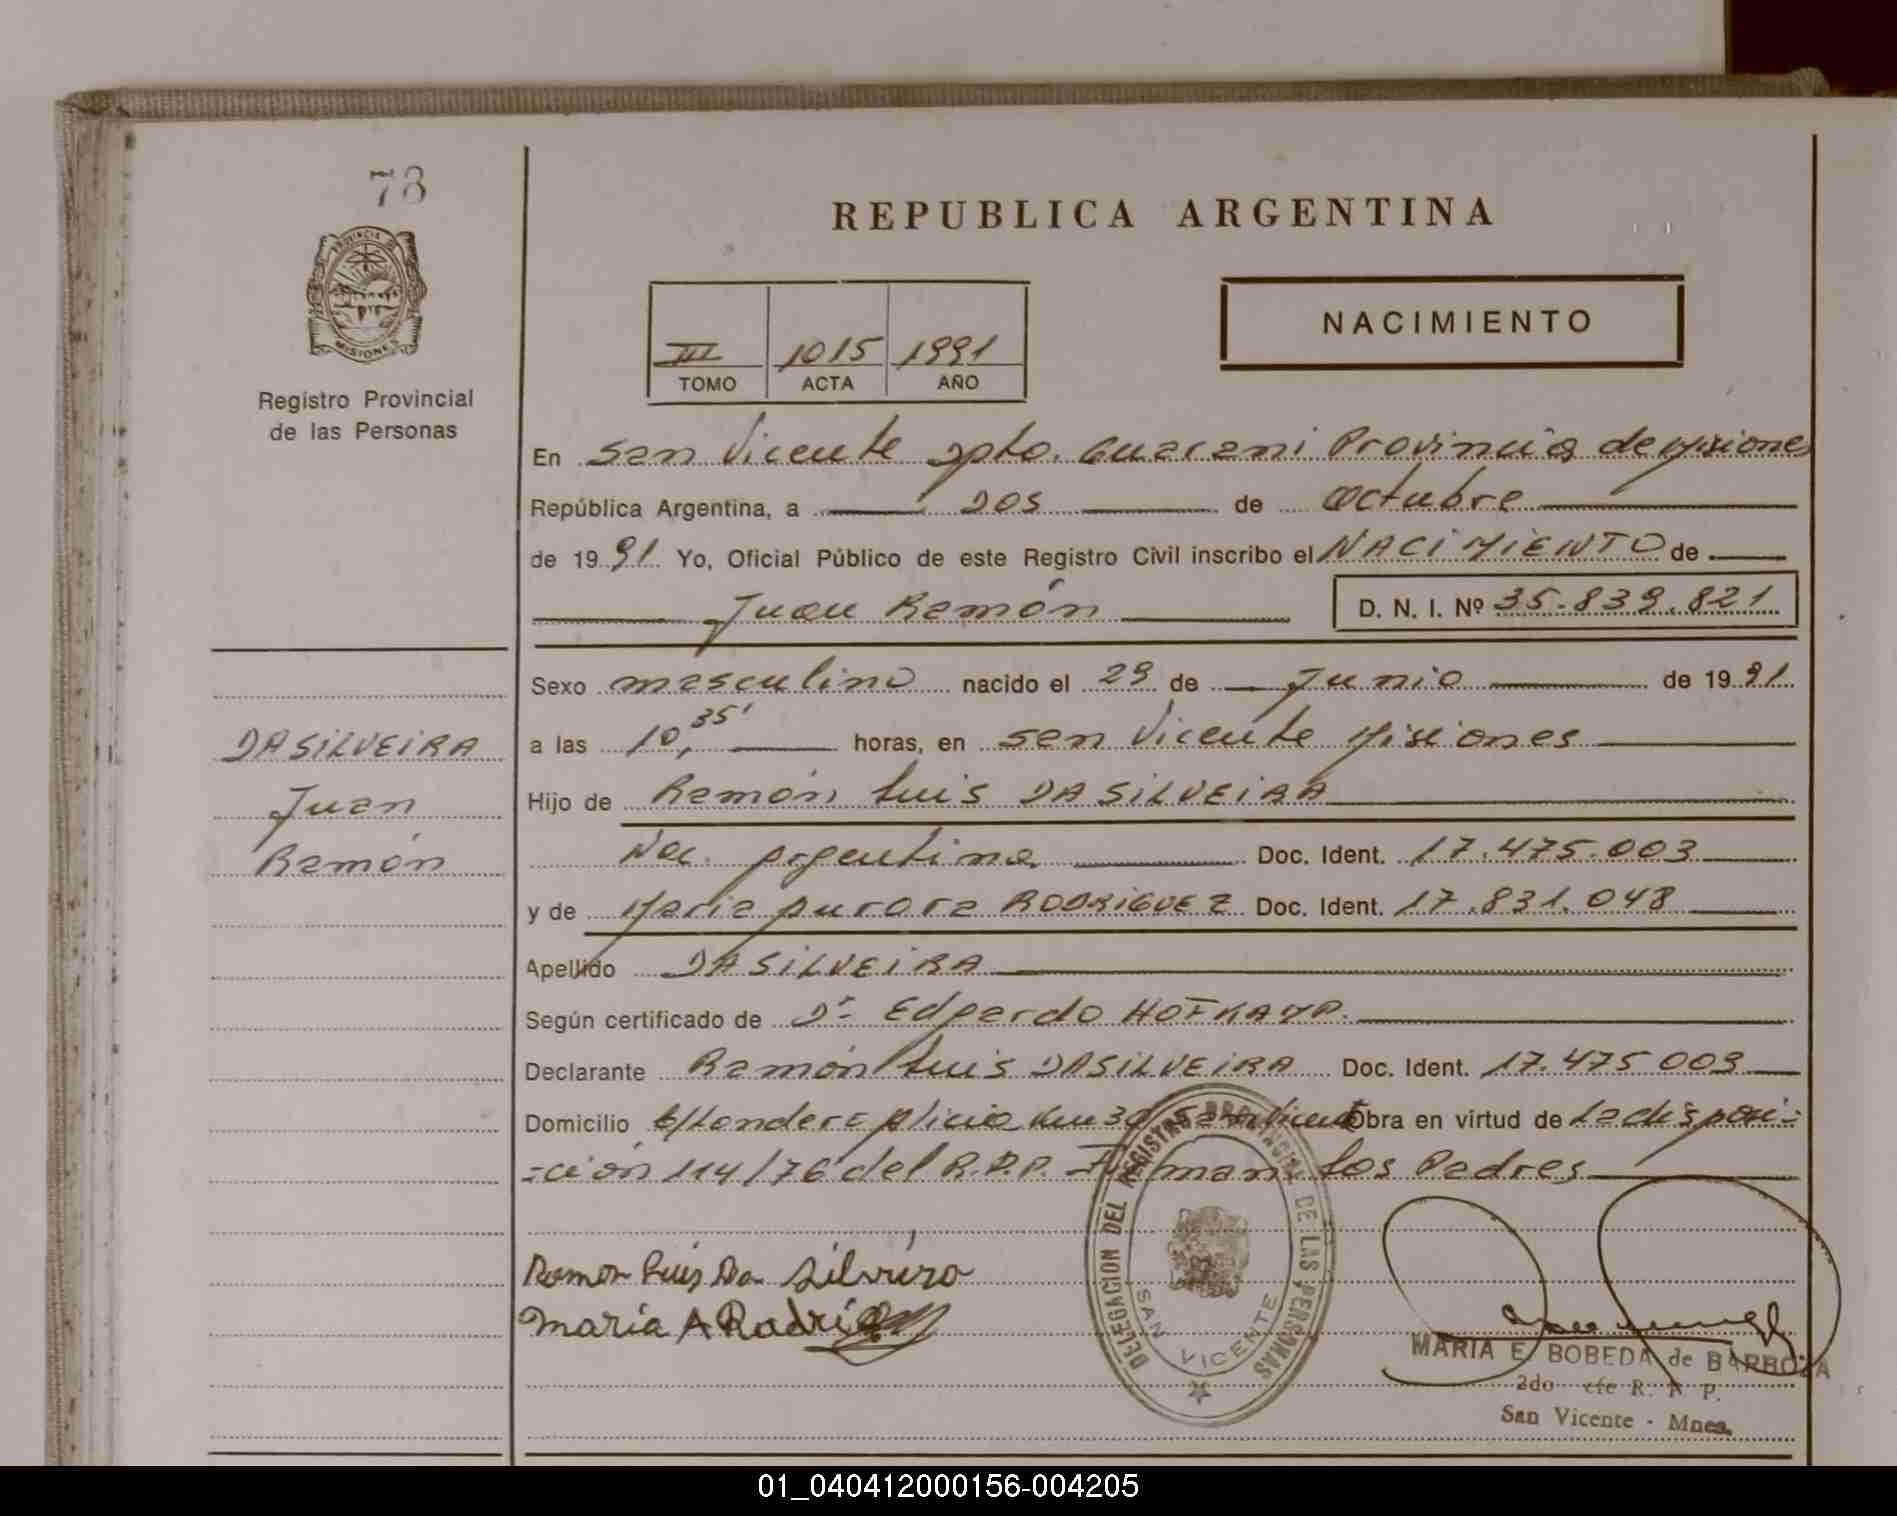 78
REPUBLICA ARGENTINA
PROVINCIA DE
MISIONES
Registro Provincial
de las Personas
NACIMIENTO
III 1015 1991
TOMO ACTA AÑO
En San Vicente Dpto. Guarani Provincia de Misiones
República Argentina, a dos de Octubre
de 1991 Yo, Oficial Público de este Registro Civil inscribo el NACIMIENTO de
Juan Ramón D. N. I. Nº 35.839.821
Sexo masculino nacido el 29 de Junio de 1991
a las 10,35' horas, en San Vicente Misiones
DASILVEIRA
Juan
Ramón
Hijo de Ramón Luis DASILVEIRA
Nac. Argentina Doc. Ident. 17.475.003
y de Maria Aurora RODRIGUEZ Doc. Ident. 17.831.048
Apellido DASILVEIRA
Según certificado de Dr. Edgardo HOFKAMP.
Declarante Ramón Luis DASILVEIRA Doc. Ident. 17.475.003
Domicilio Km 30 San Vicente Obra en virtud de La disposi=
=ción 114/76 del R.P.P. Firman los Padres
Ramon Luis Da Silveira
Maria A Rodri
DELEGACION DEL REGISTRO PROVINCIAL DE LAS PERSONAS
SAN VICENTE
MARIA E. BOBEDA de BARBOZA
2do Jefe R. P. P.
San Vicente - Mnes.
01_040412000156-004205